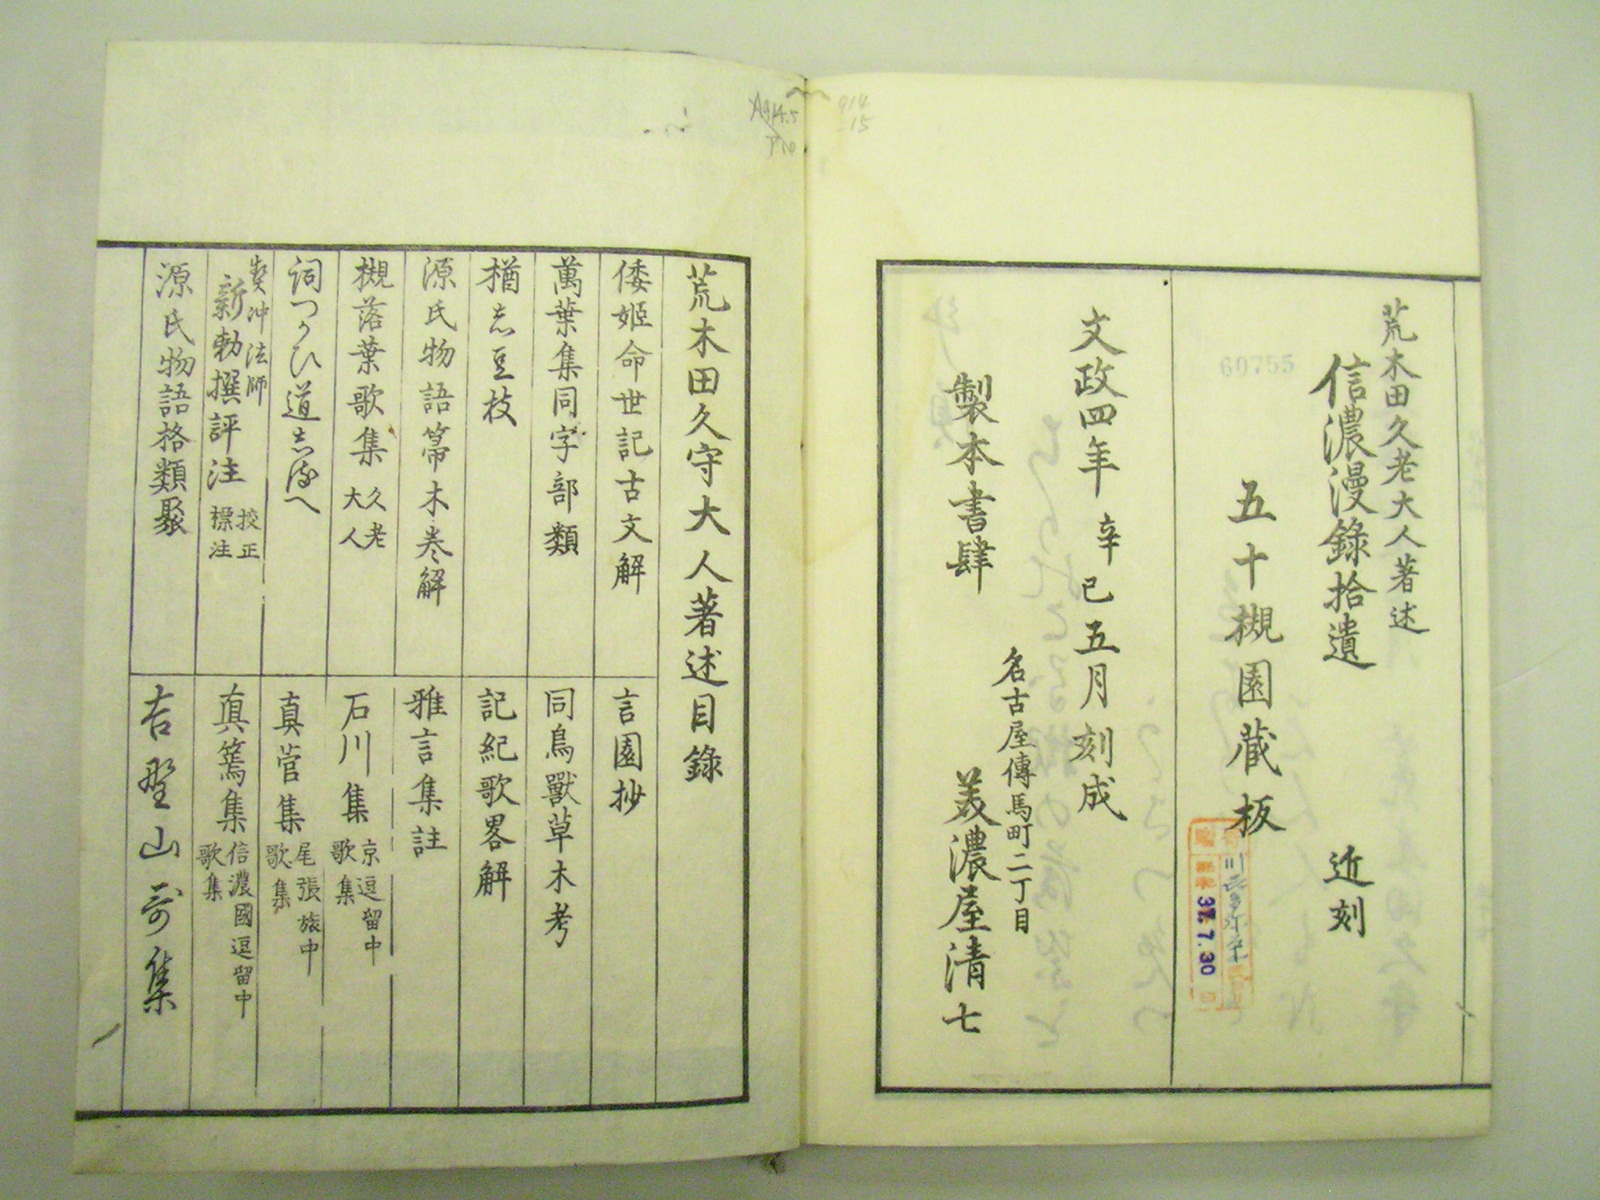 荒木田久老大人著述
信濃漫錄拾遺 近刻
五十槻園蔵板
文政四年辛巳五月刻成
製本書肆
名古屋傳馬町二丁目
美濃屋清七
60755
37.7.30
914
15
荒木田久守大人著述目錄
倭姫命世記古文解
言園抄
萬葉集同字部類
同鳥獸草木考
楢志豆枝
記紀歌畧解
源氏物語箒木巻解
雅言集註
槻落葉歌集 久老大人
石川集 京逗留中歌集
詞つかひ道志るへ
真菅集 尾張旅中歌集
契沖法師
新勅撰評注 挍正標注
真篶集 信濃國逗留中歌集
源氏物語格類聚
吉野山哥集